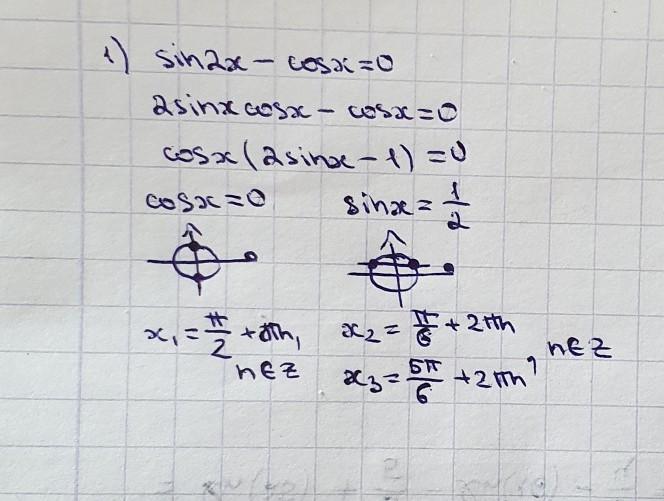 1) sin2x - cosx = 0
2sinxcosx - cosx = 0
cosx(2sinx - 1) = 0
cosx = 0 sinx = 1/2
x₁ = π/2 + πn, n∈Z
x₂ = π/6 + 2πn
x₃ = 5π/6 + 2πn, n∈Z